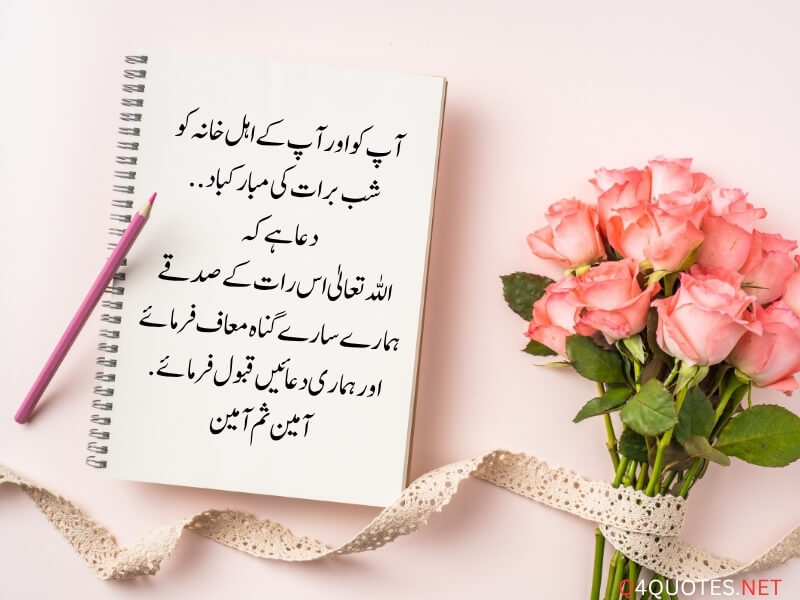 آپ کو اور آپ کے اہل خانہ کو
شب برات کی مبارکباد..
دعا ہے کہ
اللہ تعالٰی اس رات کے صدقے
ہمارے سارے گناہ معاف فرمائے
اور ہماری دعائیں قبول فرمائے.
آمین ثم آمین
Q4QUOTES.NET